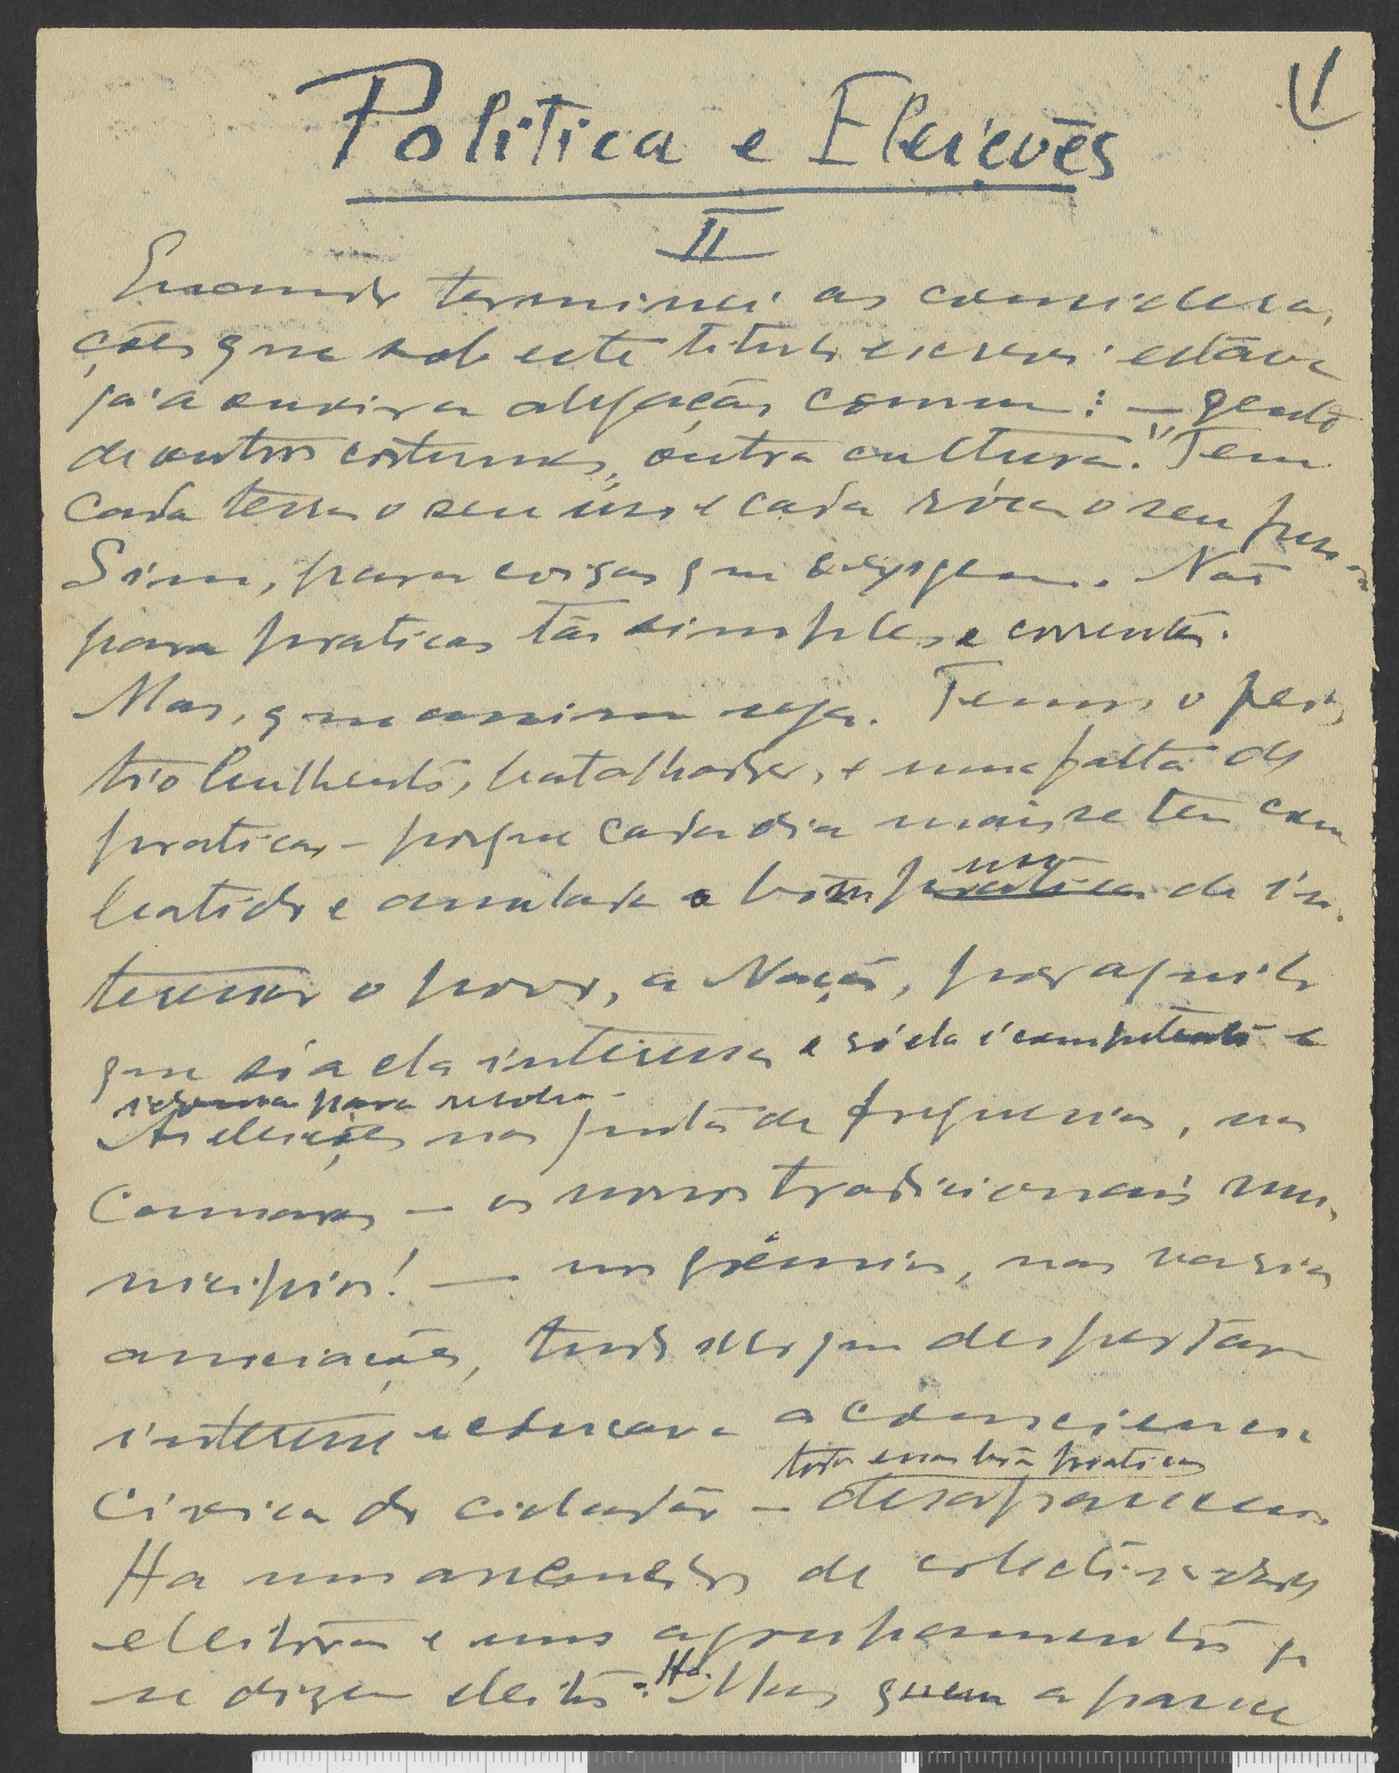 1
Politica e Eleições
II
Quando terminei as considera,
ções que sob este titulo escrevi estava
já a ouvir a alegação comum: — gente
de outros costumes, outra cultura." Tem
cada terra o seu uso e cada róca o seu fuso
Sim, para coisas que o exigem. Não
para praticas tão simples e correntes.
Mas, que assim seja. Temos o feitio
batalhador, e uma falta de
pratica — porque cada dia mais se tem com
batido e anulado o bom uso pratica de in.
teressar o povo, a Nação, por aquilo
que só a ela interessa e só ela é competente e
idonea para resolver.
As eleições nas juntas de freguesia, nas
Camaras — os nossos tradicionais mu,
nicipios! — nos grémios, nas varias
associações, tudo isso que despertava
interesse e educava a consciencia
toda essa boa pratica
civica do cidadão — desapareceu.
Ha uns arremedos de colectividades
eleitoras e uns agrupamentos q
se dizem eleitos. Ha. Mas quem aparece